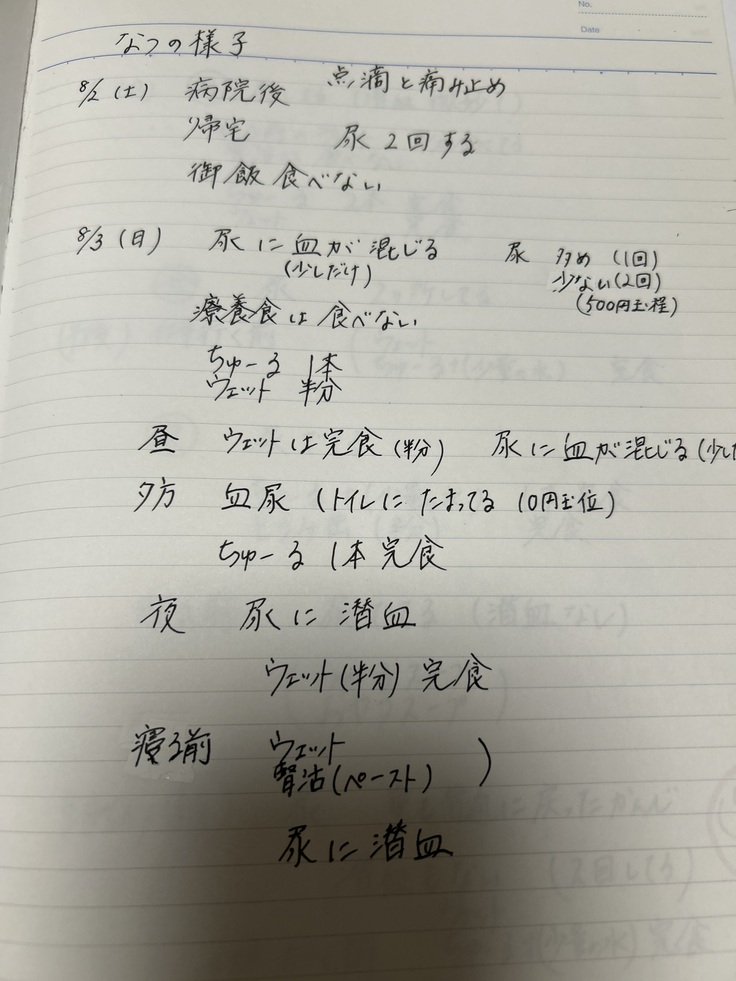 No.
Date
なつの様子
8/2 (土) 病院後 点滴と痛み止め
帰宅 尿 2回する
御飯 食べない
8/3 (日) 尿に血が混じる 尿 多め (1回)
(少しだけ) 少ない (2回)
(500円玉程)
療養食は食べない
ちゅーる 1本
ウェット 半分
昼 ウェットは完食 (半分) 尿に血が混じる (少し
夕方 血尿 (トイレに たまってる 10円玉位)
ちゅーる 1本 完食
夜 尿に潜血
ウェット (半分) 完食
寝る前 ウェット
腎活 (ペースト) )
尿に潜血